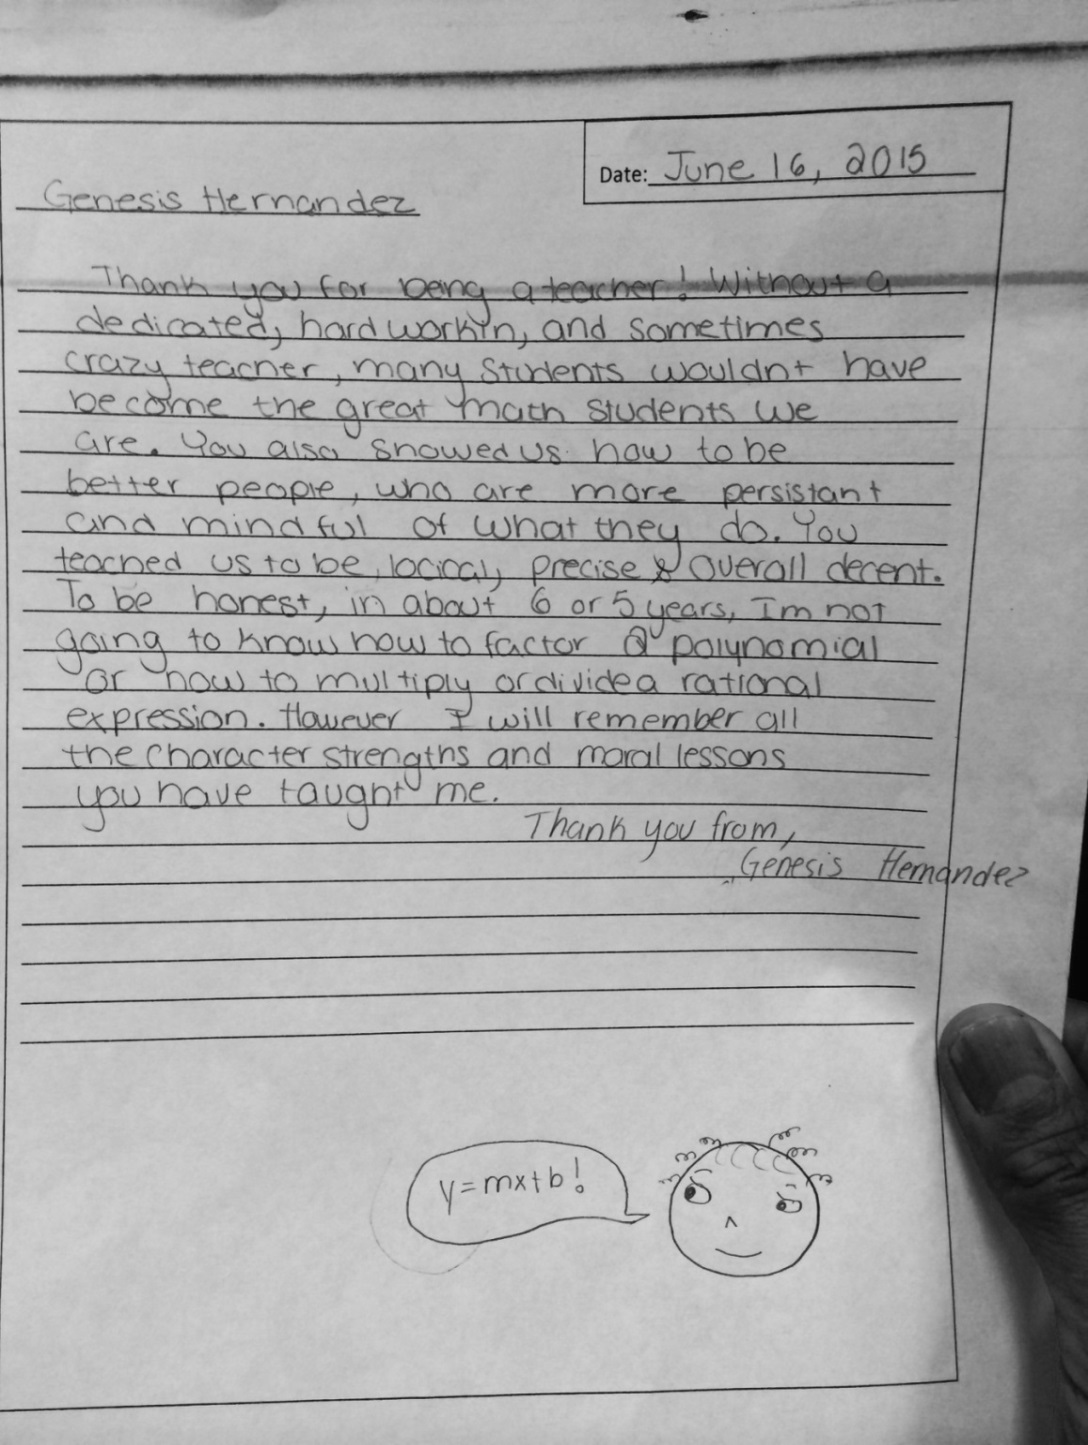 Date: June 16, 2015
Genesis Hernandez
Thank you for being a teacher! Without a
dedicated, hard workin, and sometimes
crazy teacher, many students wouldnt have
become the great math students we
are. You also showed us how to be
better people, who are more persistant
and mindful of what they do. You
teached us to be, locical, precise & overall decent.
To be honest, in about 6 or 5 years, Im not
going to know how to factor a polynomial
or how to multiply or divide a rational
expression. However I will remember all
the character strengths and moral lessons
you have taught me.
Thank you from,
Genesis Hernandez
y=mx+b!